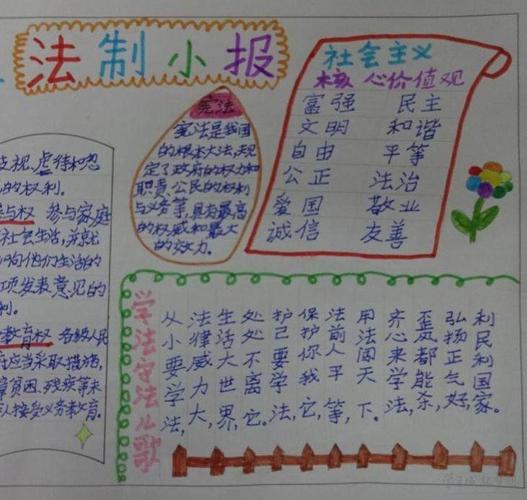 法制小报
视,虐待和忽
的权利.
与权 参与家庭
社会生活,并就
向他们生活的
项发表意见的
利.
教育权 各级人民
应当采取措施,
贫困、残疾等未
人接受义务教育.
宪法
宪法是我国
的根本大法,规
定了政府的权力和
职责,公民的权利
与义务等,具有最高
的权威和最大
的效力.
社会主义
核心价值观
富强 民主
文明 和谐
自由 平等
公正 法治
爱国 敬业
诚信 友善
学法守法儿歌
从小要学法,
法律威力大,
生活大世界,
处处不离它.
护己要学法,
保护你我它.
法前人平等,
用法闯天下.
齐心来学法,
歪都能杀,
弘扬正气好,
利民利国家.